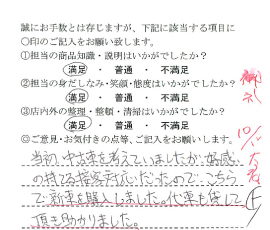 誠にお手数とは存じますが、下記に該当する項目に
○印のご記入をお願い致します。
①担当の商品知識・説明はいかがでしたか?
満足 ・ 普通 ・ 不満足
②担当の身だしなみ・笑顔・態度はいかがでしたか?
満足 ・ 普通 ・ 不満足
③店内外の整理・整頓・清掃はいかがでしたか?
満足 ・ 普通 ・ 不満足
◎ご意見・お気付きの点等、ご記入をお願いします。
当初、中古車を考えていましたが、好感
の持てる接客対応だったので、こちら
で新車を購入しました。代車も貸して
頂き助かりました。
御礼